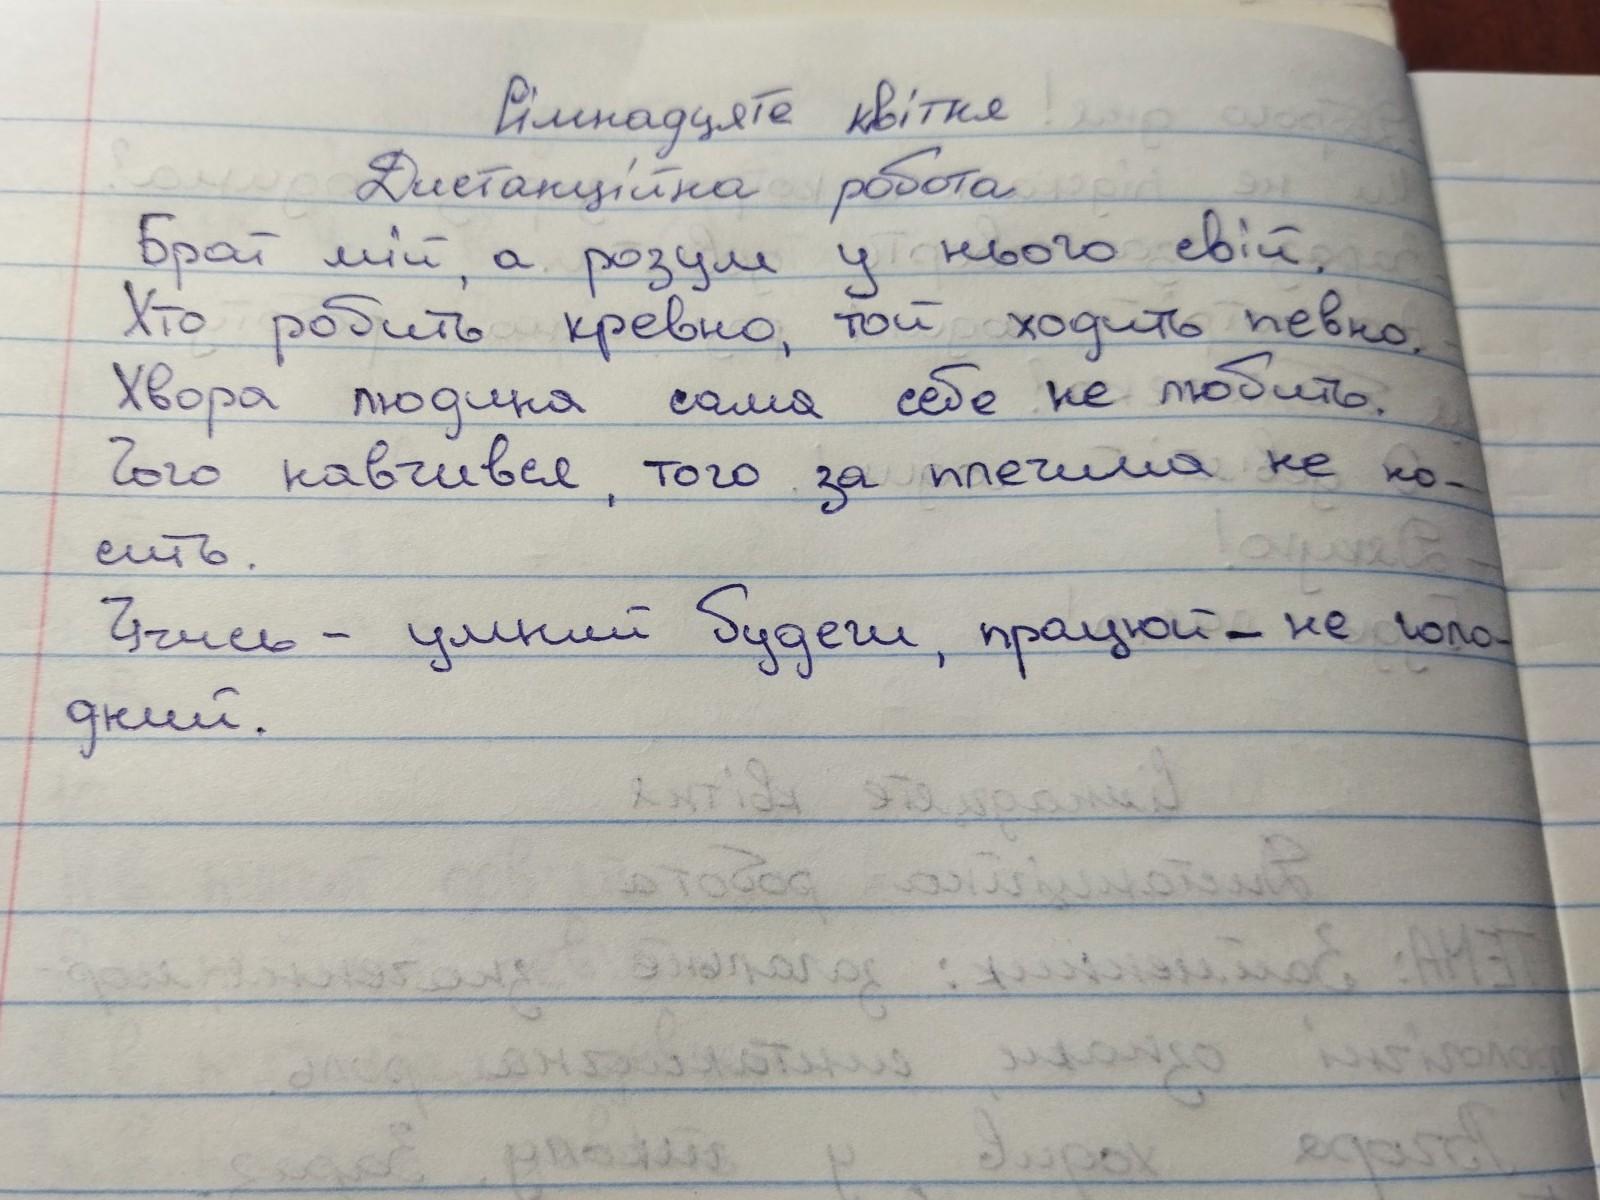 Сімнадцяте квітня
Дистанційна робота
Брат мій, а розум у нього свій.
Хто робить кревно, той ходить певно.
Хвора людина сама себе не любить.
Чого навчився, того за плечима не но-
сить.
Учись - умний будеш, працюй - не голо-
дний.